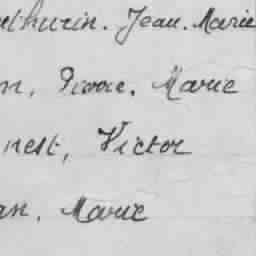 athurin. Jean. Marie
n, Pierre, Marie
nest, Victor
an, Marie